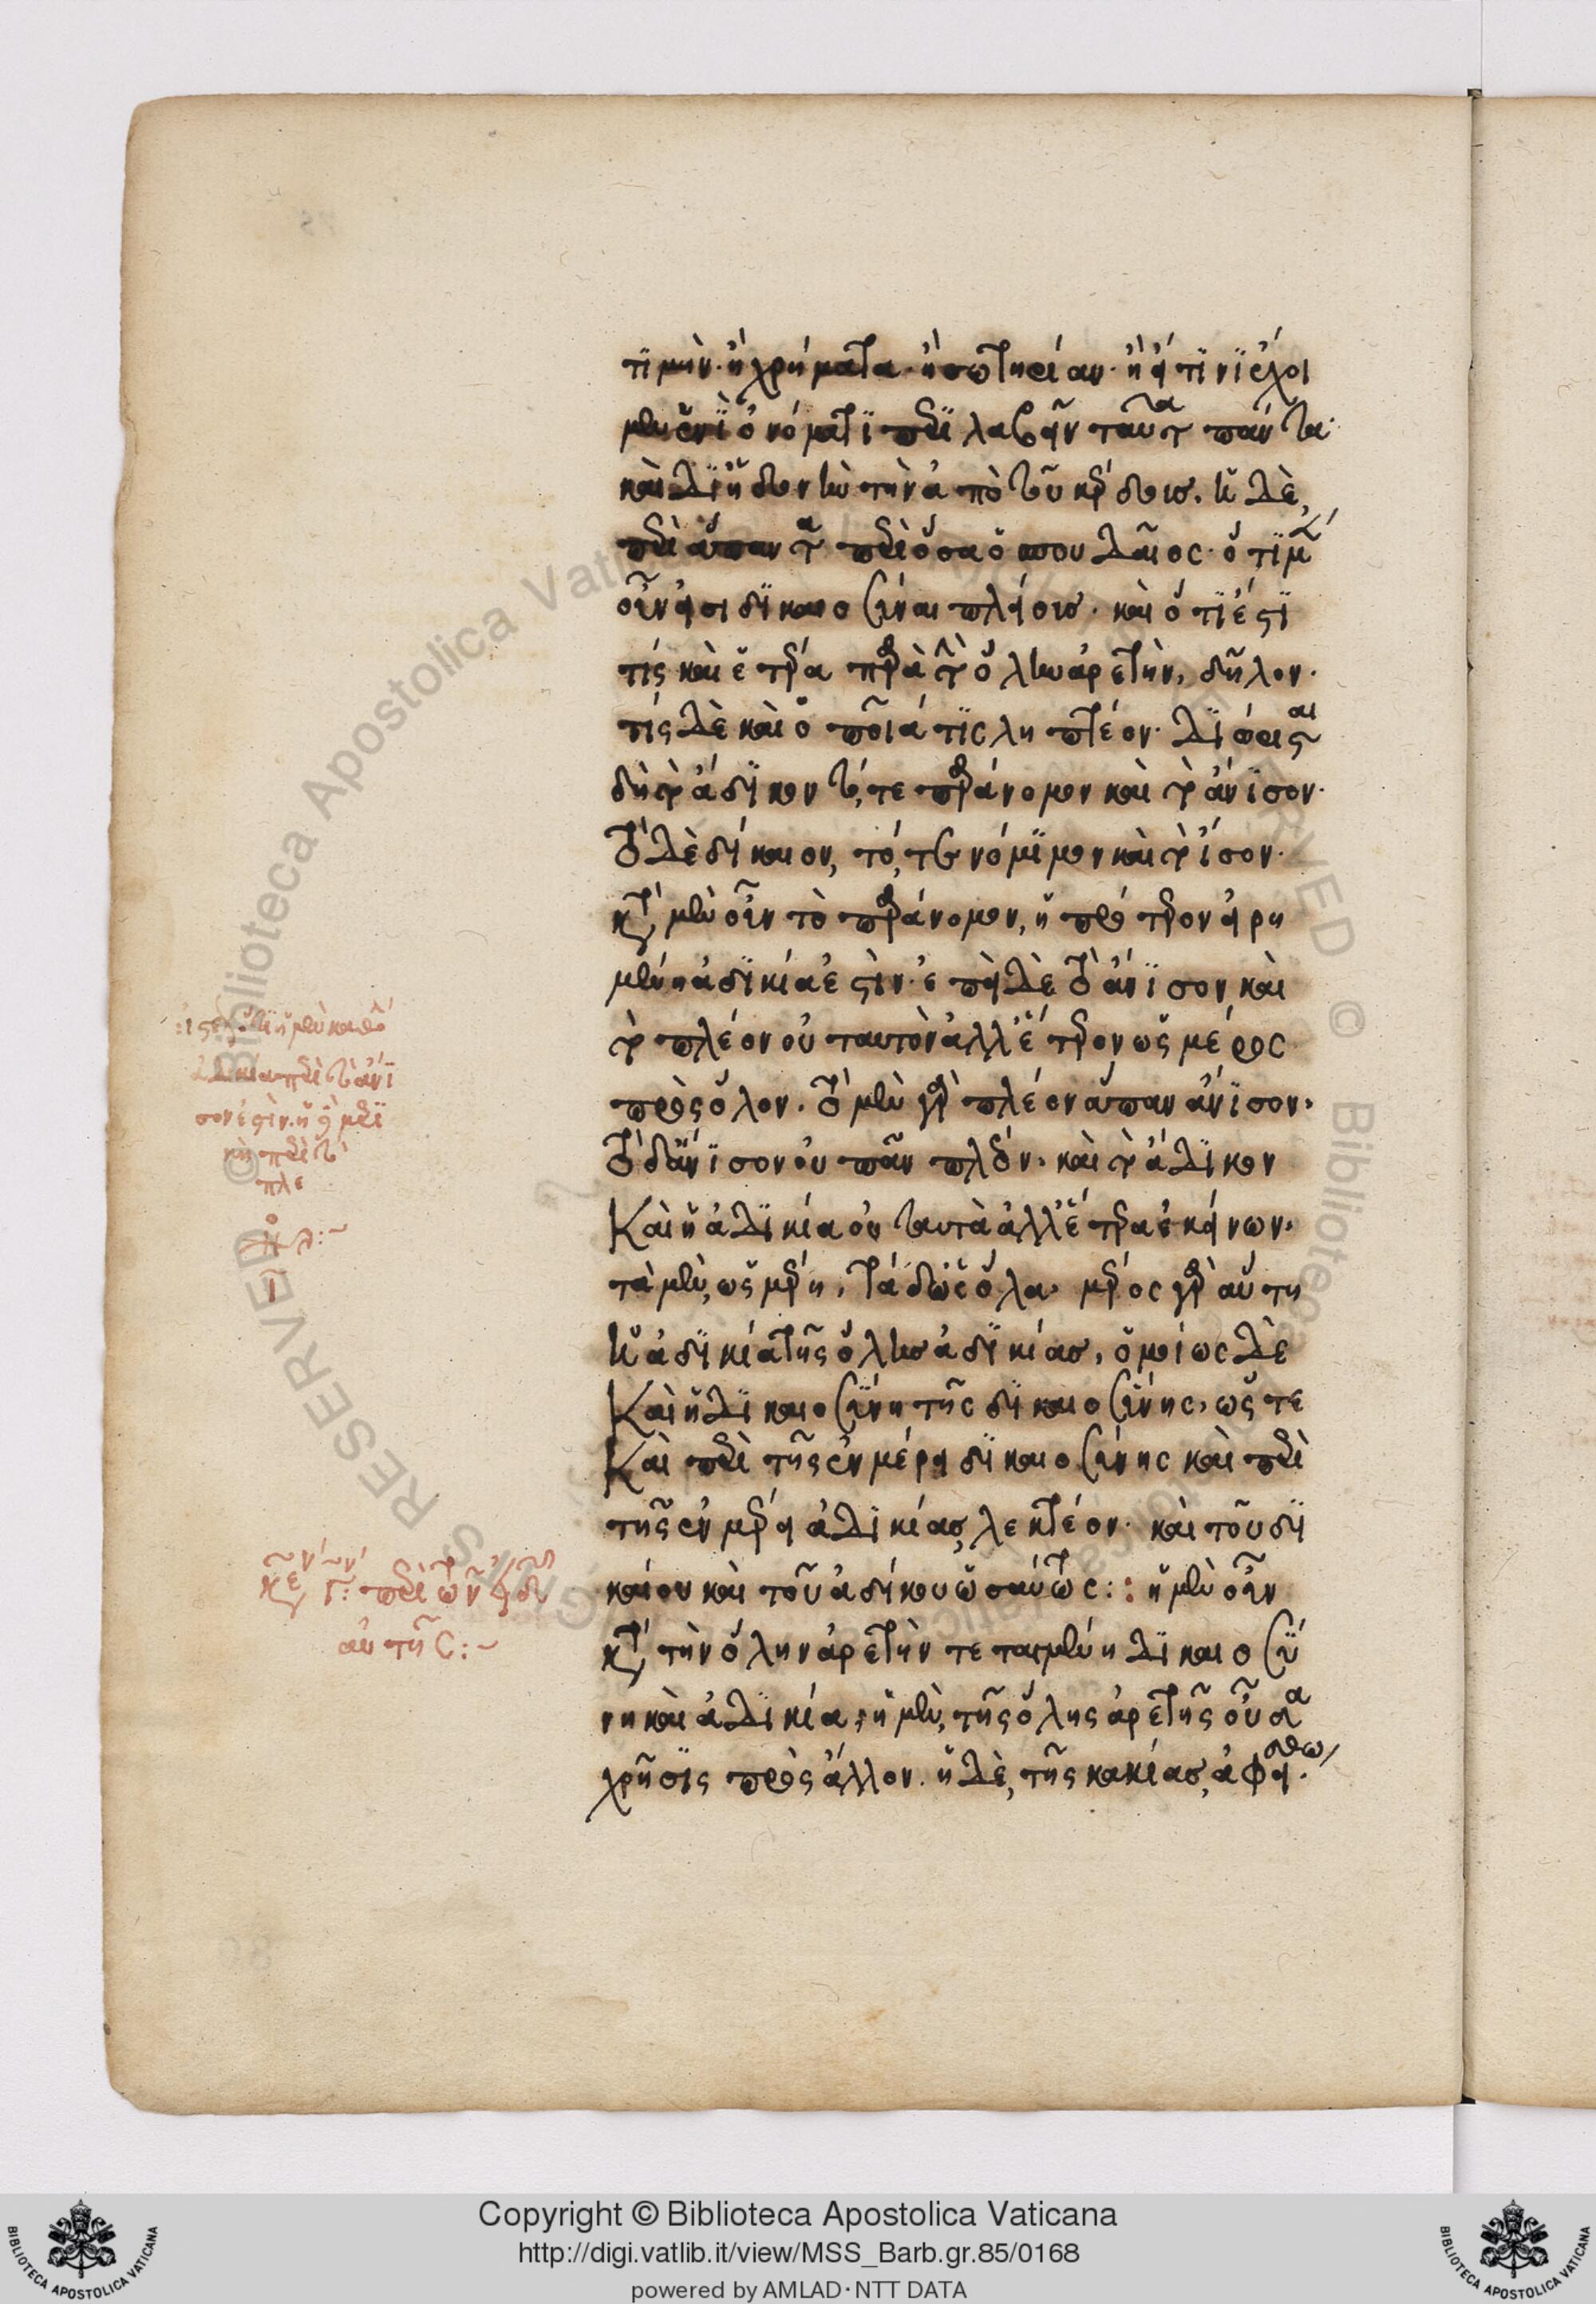 τιμὴν· ἢ χρήματα· ἢ σωτηρίαν· ἢ εἴ τινι ἔχοι
μεν ἑνὶ ὀνόματι περιλαβεῖν ταῦτα πάντα·
καὶ δι' ἡδονὴν τὴν ἀπὸ τοῦ κέρδους. ἡ δὲ,
περὶ ἅπαντα περὶ ὅσα ὁ σπουδαῖος· ὅτι μὲν
οὖν εἰσὶ δικαιοσύναι πλείους· καὶ ὅτι ἔστι
τίς καὶ ἑτέρα παρὰ τὴν ὅλην ἀρετὴν, δῆλον·
τίς δὲ καὶ ὁποία τὶς ληπτέον· διώρισται
δὴ τὸ ἄδικον τό, τε παράνομον καὶ τὸ ἄνισον·
τὸ δὲ δίκαιον, τό, τε νόμιμον καὶ τὸ ἴσον·
κατὰ μὲν οὖν τὸ παράνομον, ἡ πρότερον εἰρη
μένη ἀδικία ἐστὶν· ἐπεὶ δὲ τὸ ἄνισον καὶ
τὸ πλέον οὐ ταυτὸν ἀλλ' ἕτερον ὡς μέρος
πρὸς ὅλον· τὸ μὲν γὰρ πλέον ἅπαν ἄνισον·
τὸ δ' ἄνισον οὐ πᾶν πλέον· καὶ τὸ ἄδικον
Καὶ ἡ ἀδικία οὐ ταυτὰ ἀλλ' ἕτερα ἐκείνων·
τὰ μὲν, ὡς μέρη, τὰ δ' ὡς ὅλα· μέρος γὰρ αὕτη
ἡ ἀδικία τῆς ὅλης ἀδικίας, ὁμοίως δὲ
Καὶ ἡ δικαιοσύνη τῆς δικαιοσύνης, ὥστε
Καὶ περὶ τῆς ἐν μέρει δικαιοσύνης καὶ περὶ
τῆς ἐν μέρει ἀδικίας, λεκτέον· καὶ τοῦ δι
καίου καὶ τοῦ ἀδίκου ὡσαύτως :: ἡ μὲν οὖν
κατὰ τὴν ὅλην ἀρετὴν τεταγμένη δικαιοσύ
νη καὶ ἀδικία, ἡ μὲν, τῆς ὅλης ἀρετῆς οὖσα
χρῆσις πρὸς ἄλλον. ἡ δὲ, τῆς κακίας, ἀφείσθω·
ἡ μὲν καθό
περὶ τὸ ἄνι
σον ἐστὶν. ἡ
περὶ τὸ
πλέ
περὶ
αὐτῆς :~
Copyright © Biblioteca Apostolica Vaticana
http://digi.vatlib.it/view/MSS_Barb.gr.85/0168
powered by AMLAD·NTT DATA
BIBLIOTECA APOSTOLICA VATICANA
BIBLIOTECA APOSTOLICA VATICANA